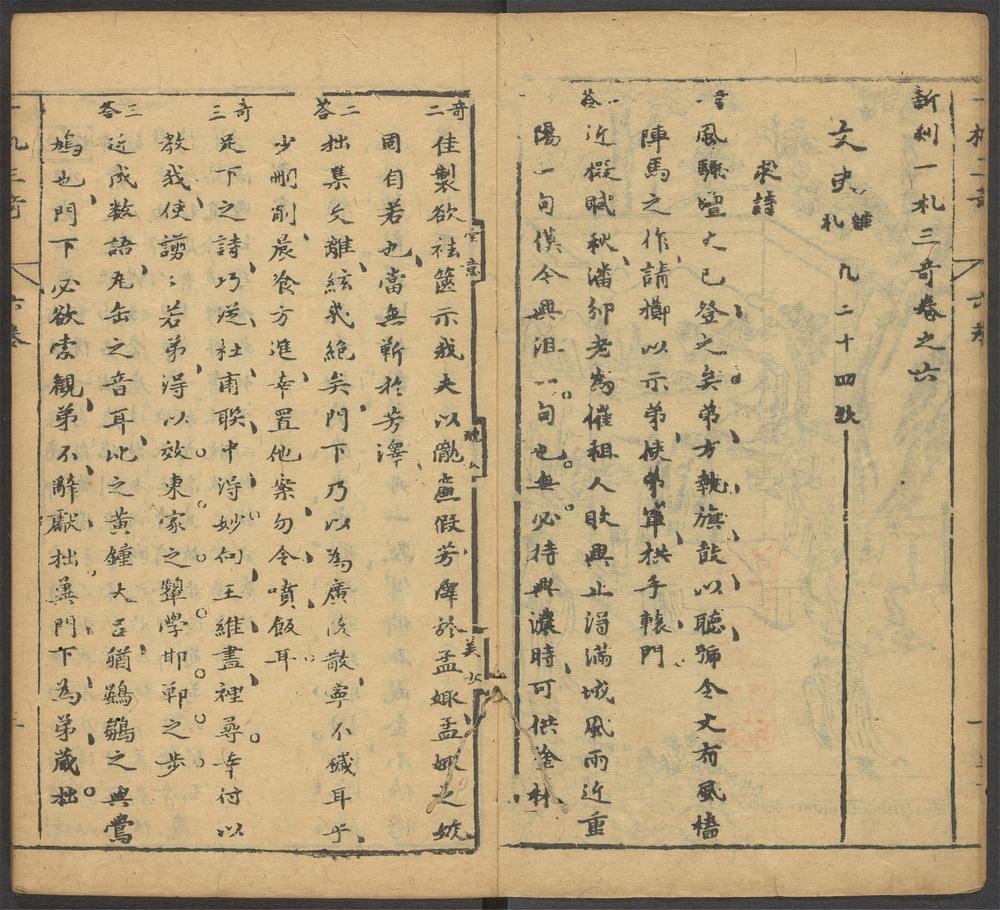 新刻一札三奇卷之六
文史 雜札 凡二十四欵
求詩
一奇 風騷壇大已登之矣弟方執旗鼓以聽號令丈有風檣
陣馬之作請擲以示弟使弟軍拱手轅門
一答 近擬賦秋潘邠老為催租人敗興止得滿城風雨近重
陽一句僕今興沮一句也無必持興濃時可供塗
二奇 佳製欲祛篋示我夫以亂盧假芳澤於孟娵孟娵之嫉
固自若也當無靳於芳澤
二答 拙集久離絃戒絕矣門下乃以為廣陵散寧不碱耳乎
少刪削晨飡方進幸置他案勿令噴飯耳
三奇 足下之詩巧從杜甫聯中得妙向王維畫裡尋幸付以
教我使謭謭若弟得以效東家之顰學邯鄲之步
三答 近成数語瓦缶之音耳比之黄鍾大呂猶鷃鶵之與鶯
鳩也門下必欲索觀弟不辭獻拙兾門下為弟藏拙
一札三奇 六卷